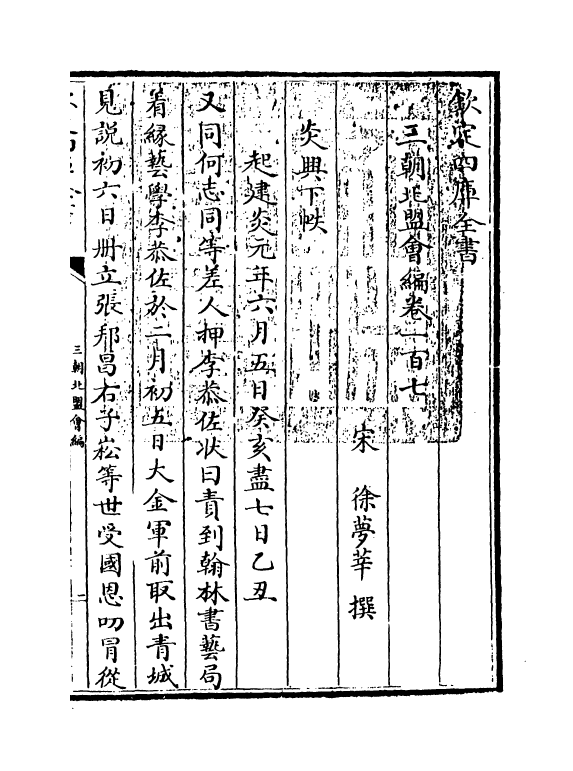 欽定四庫全書
三朝北盟會編卷一百七
宋　徐夢莘　撰
炎興下帙
起建炎元年六月五日癸亥盡七日乙丑
又同何志同等差人押李恭佐狀曰責到翰林書藝局
看緣藝學李恭佐於二月初五日大金軍前取出青城
見說初六日册立張邦昌右子崧等世受國恩叨冒從
三朝北盟會編